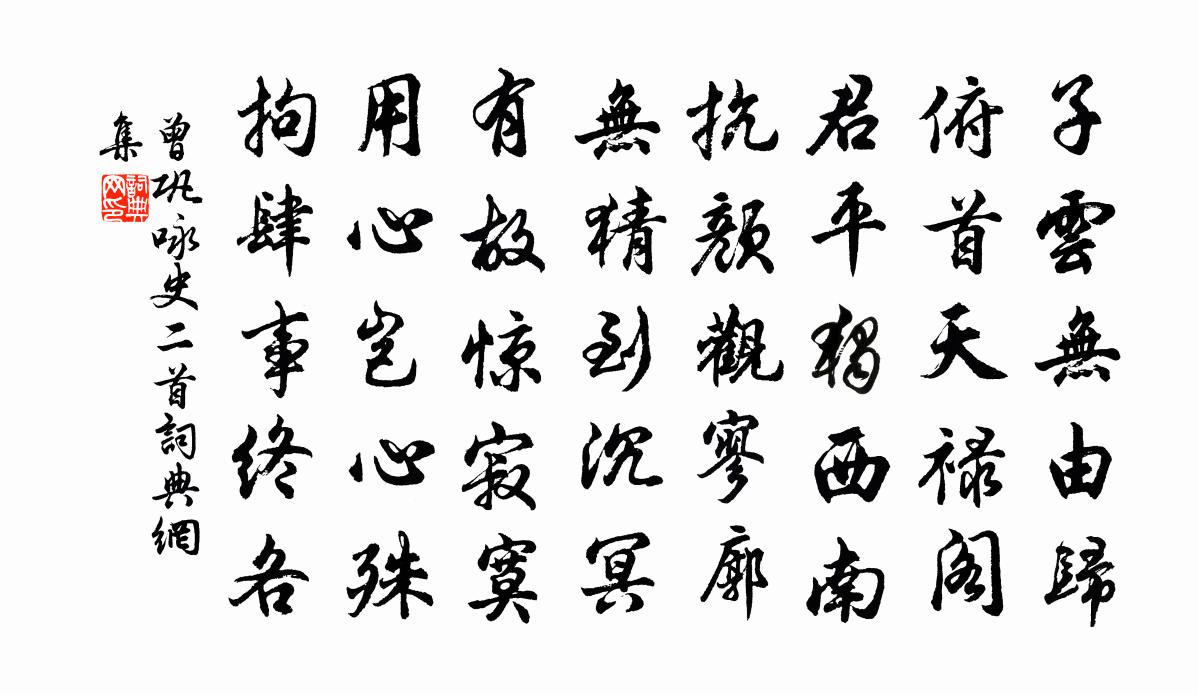 子雲無由歸
俯首天禄阁
君平獨西南
抗顏觀寥廓
無猜到沉冥
有故惊寂寞
用心岂心殊
拘肆事终各
曾巩咏史二首詞典網
集
詞典
网印